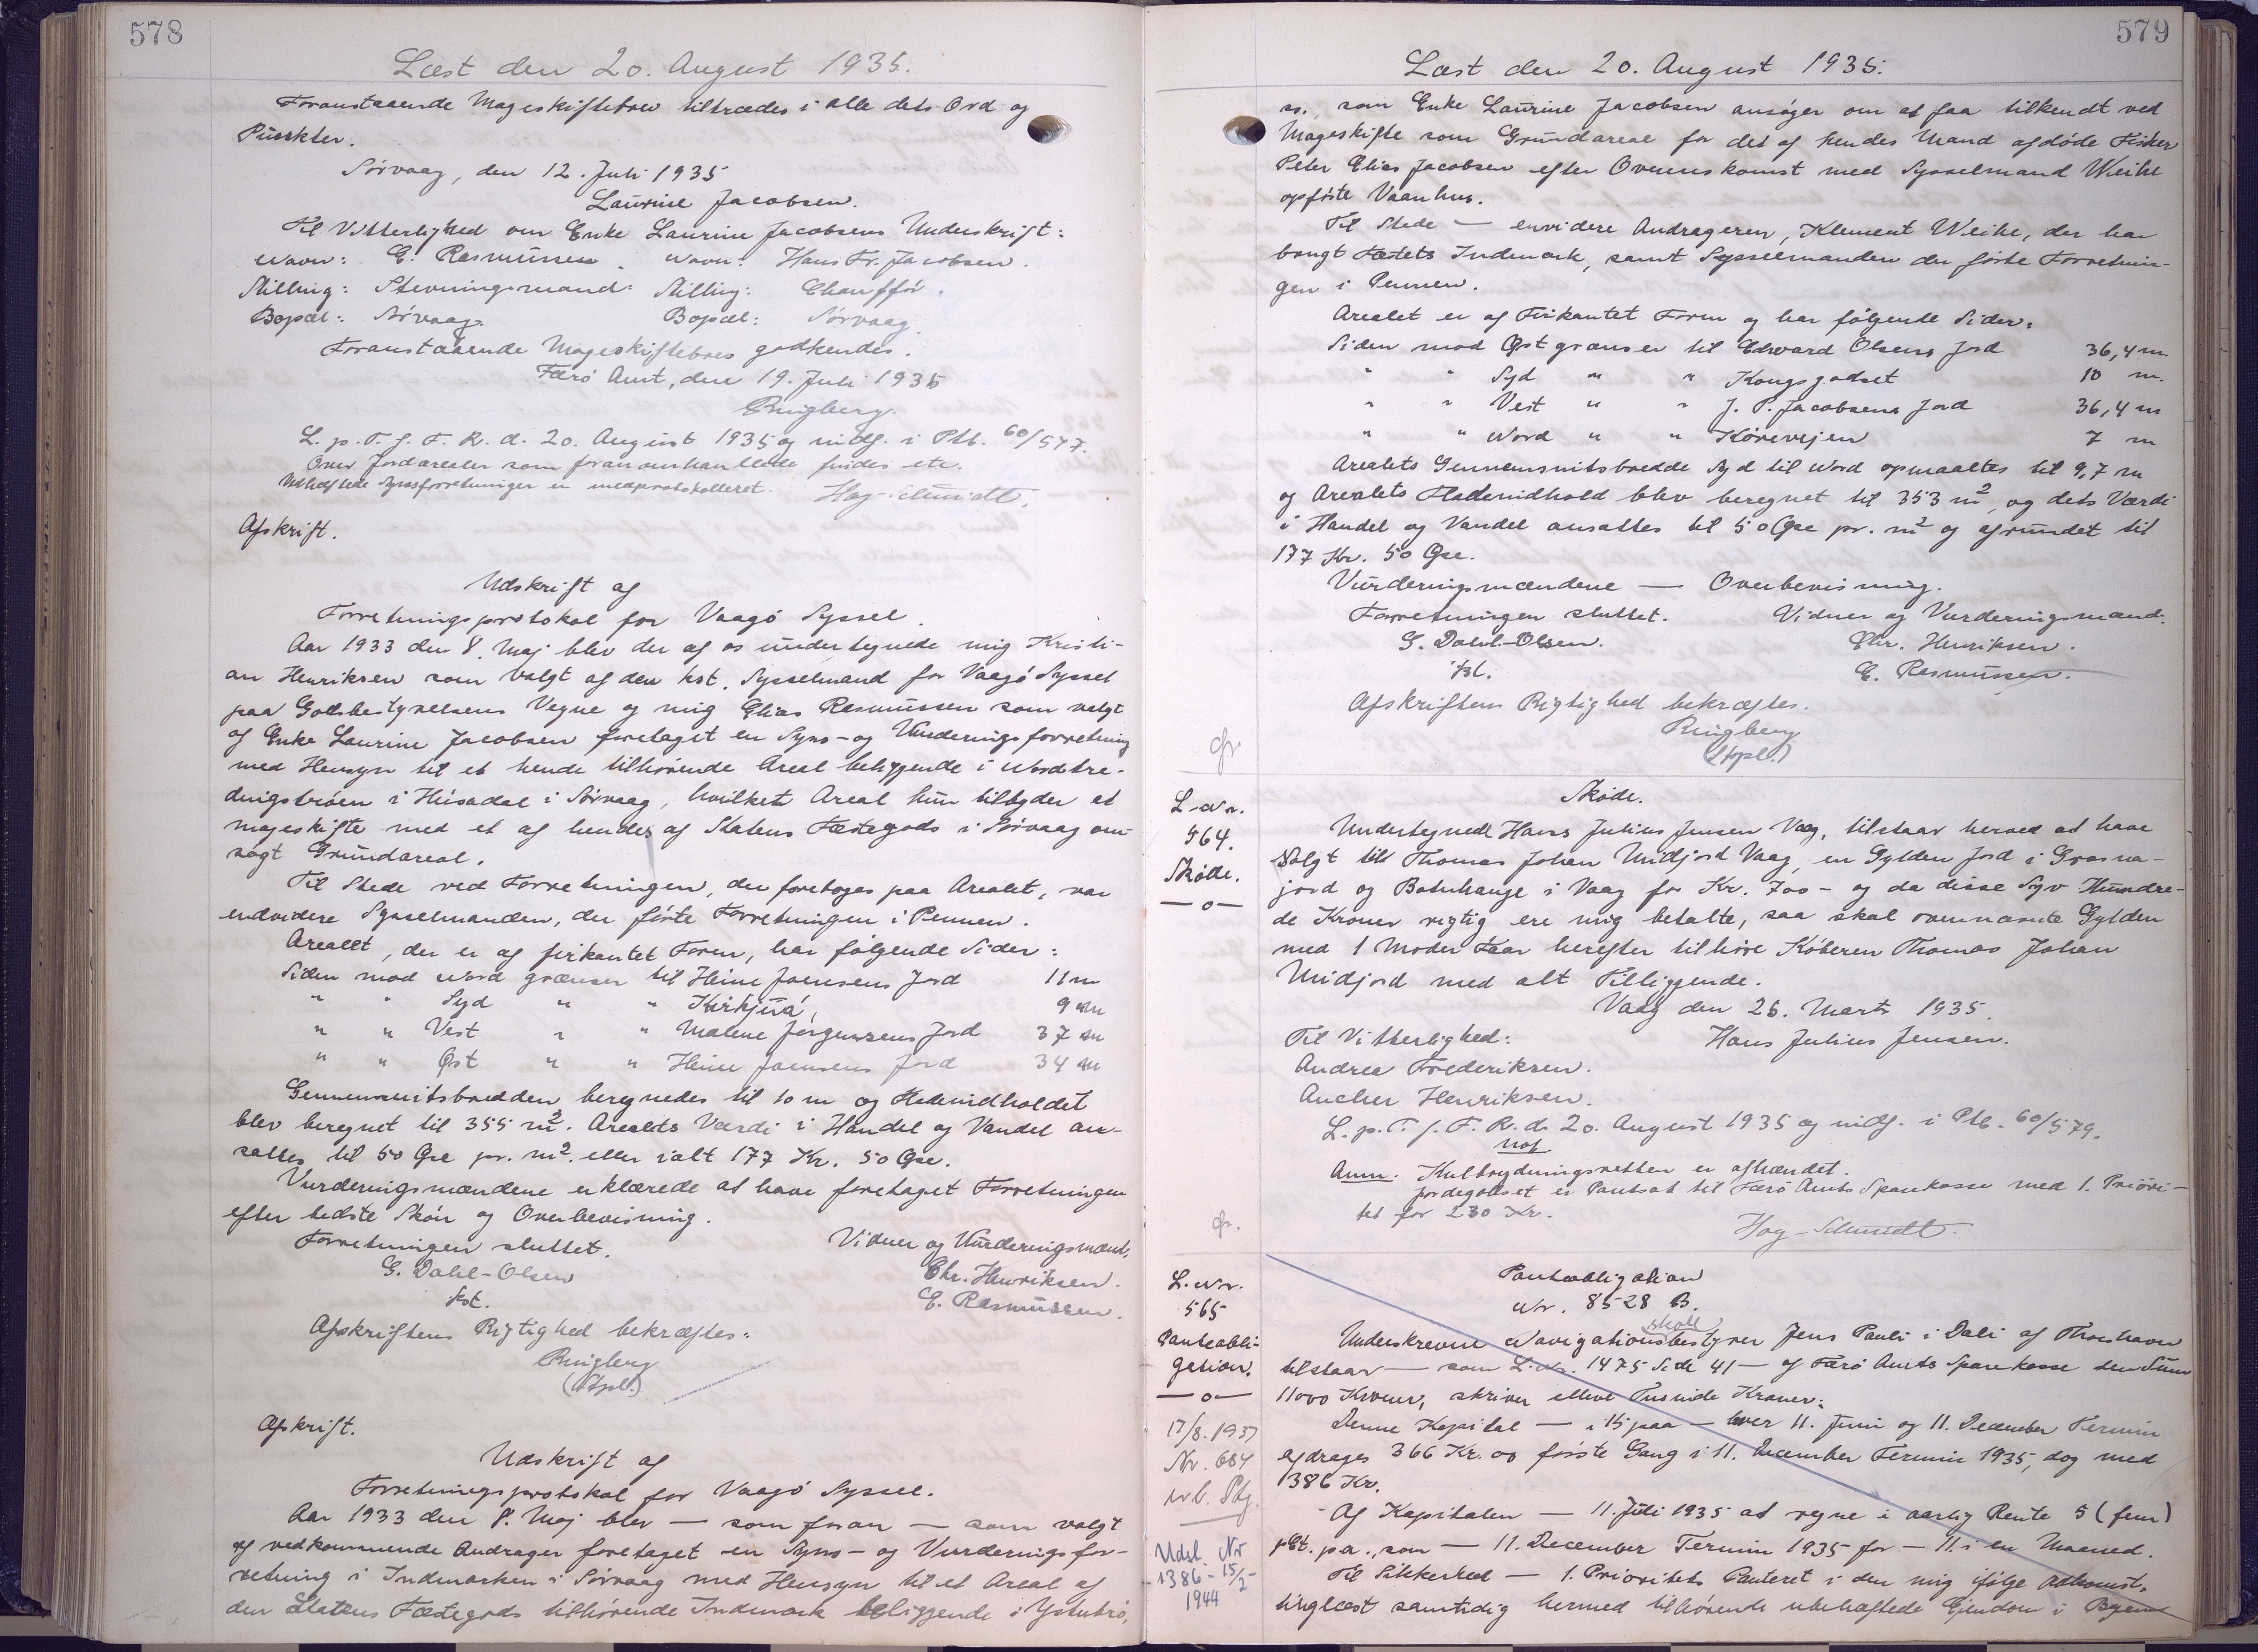 578
Læst den 20. August 1935.
Foranstaaende Mageskiftebrev tiltrædes i alle dets Ord og
Punkter.
Sörvaag, den 12. Juli 1935
Laurine Jacobsen.
Til Vitterlighed om Enke Laurine Jacobsens Underskrift:
Navn: E. Rasmussen. Navn: Hans Fr. Jacobsen.
Stilling: Stevningsmand. Stilling: Chauffør.
Bopæl: Sörvaag. Bopæl: Sörvaag.
Foranstaaende Mageskiftebrev godkendes.
Færö Amt, den 19. Juli 1935
Ringberg.
L. p. T. f. F. R. d. 20. August 1935 og indf. i Ptb. 60/577.
Over Jordarealer som foran omhandlede findes etc.
Vedhæftede Synsforretninger er medprotokolleret. Høg-Schmidt.
Afskrift.
Udskrift af
Forretningsprotokol for Vaagö Syssel.
Aar 1933 den 8. Maj blev der af os undertegnede mig Kristi-
an Henriksen som valgt af den kst. Sysselmand for Vaagö Syssel
paa Godsbestyrelsens Vegne og mig Elias Rasmussen som valgt
af Enke Laurine Jacobsen foretaget en Syns- og Vurderingsforretning
med Hensyn til et hende tilhörende Areal beliggende i Nordtre-
dingströen i Húsadal i Sörvaag, hvilket Areal hun tilbyder at
mageskifte med et af hende, af Statens Fæstegods i Sörvaag an-
søgt Grundareal.
Til Stede ved Forretningen, der foretoges paa Arealet, var
endvidere Sysselmanden, der förte Forretningen i Pennen.
Arealet, der er af firkantet Form, har følgende Sider:
Siden mod Nord grænser til Heine Joensens Jord 11 m
" " Syd " " Kirkjuá, 9 m
" " Vest " " Malene Jørgensens Jord 37 m
" " Øst " " Heine Joensens Jord 34 m
Gennemsnitsbredden beregnedes til 10 m og Fladeindholdet
blev beregnet til 355 m². Arealets Værdi i Handel og Vandel an-
sattes til 50 Øre pr. m². eller ialt 177 Kr. 50 Øre.
Vurderingsmændene erklærede at have foretaget Forretningen
efter bedste Skön og Overbevisning.
Forretningen sluttet. Vidner og Vurderingsmænd.
G. Dahl-Olsen Chr. Henriksen.
kst. E. Rasmussen.
Afskriftens Rigtighed bekræftes:
Ringberg
(Stpl.)
Afskrift.
Udskrift af
Forretningsprotokol for Vaagö Syssel.
Aar 1933 den 8. Maj blev — som foran — som valgt
af vedkommende Andrager foretaget en Syns- og Vurderingsfor-
retning i Indmarken i Sörvaag med Hensyn til et Areal af
den Statens Fæstegods tilhörende Indmark beliggende i Ystutrö,
579
Læst den 20. August 1935.
som Enke Laurine Jacobsen ansøger om at faa tilkendt ved
Mageskifte som Grundareal for det af hendes Mand afdöde Fisker
Peter Elias Jacobsen efter Overenskomst med Sysselmand Weihe
opförte Vaanhus.
Til Stede — envidere Andrageren, Klement Weihe, der har
brugt Fæstets Indmark, samt Sysselmanden der förte Forretnin-
gen i Pennen.
Arealet er af Firkantet Form og har fölgende Sider:
Siden mod Øst grænser til Edward Olsens Jord 36,4 m.
" " Syd " " Kongsgodset 10 m.
" " Vest " " J. P. Jacobsens Jord 36,4 m
" " Nord " " Kørevejen 7 m
Arealets Gennemsnitsbredde Syd til Nord opmaaltes til 9,7 m
og Arealets Fladeindhold blev beregnet til 353 m², og dets Værdi
i Handel og Vandel ansattes til 50 Øre pr. m² og afrundet til
177 Kr. 50 Øre.
Vurderingsmændene — Overbevisning.
Forretningen sluttet. Vidner og Vurderingsmænd.
G. Dahl-Olsen. Chr. Henriksen.
kst. E. Rasmussen.
Afskriftens Rigtighed bekræftes.
Ringberg
(Stpl.)
L. Nr.
564.
Skøde.
—o—
Skøde.
Undertegnede Hans Julius Jensen Vaag, tilstaar herved at have
Solgt till Thomas Johan Midjord Vaag, en Gylden Jord i Grasna-
jord og Botnhauge i Vaag for Kr. 700 - og da disse Syv Hundre-
de Kroner rigtig ere mig betalte, saa skal ovennævnte Gylden
med 1 Moder Faar herefter tilhøre Köberen Thomas Johan
Midjord med alt Tilliggende.
Vaag den 26. Marts 1935.
Til Vitterlighed: Hans Julius Jensen.
Andrea Frederiksen.
Ancher Henriksen.
L. p. T. f. F. R. d. 20. August 1935 og indf. i Ptb. 60/579.
Anm. Kulbrydningsretten er afhændet.
Jordegodset er Pantsat til Færö Amts Sparekasse med 1. Priori-
tet for 230 Kr.
Høg-Schmidt.
L. Nr.
565
Panteobli-
gation.
—o—
17/8. 1937
Nr. 684
Udsl. Nr
1386 - 15/2 -
1944
Panteobligation
Nr. 8528 B.
skole
Underskrevne Navigationsbestyrer Jens Pauli i Dali af Thorshavn
tilstaar — som L. Nr. 1475 Side 41 — af Færö Amts Sparekasse den Sum
11000 Kroner, skriver elleve Tusinde Kroner.
Denne Kapital — i 15 paa — hver 11. Juni og 11. December Termin
afdrages 366 Kr. og förste Gang i 11. December Termin 1935, dog med
386 Kr.
Af Kapitalen — 11. Juli 1935 at regne i aarlig Rente 5 (fem)
pCt. p.a., som — 11. December Termin 1935 for — 11. i en Maaned.
Til Sikkerhed — 1. Prioritets Panteret i den mig ifölge Adkomst,
tinglæst samtidig hermed tilhörende ubehæftede Ejendom i Byens